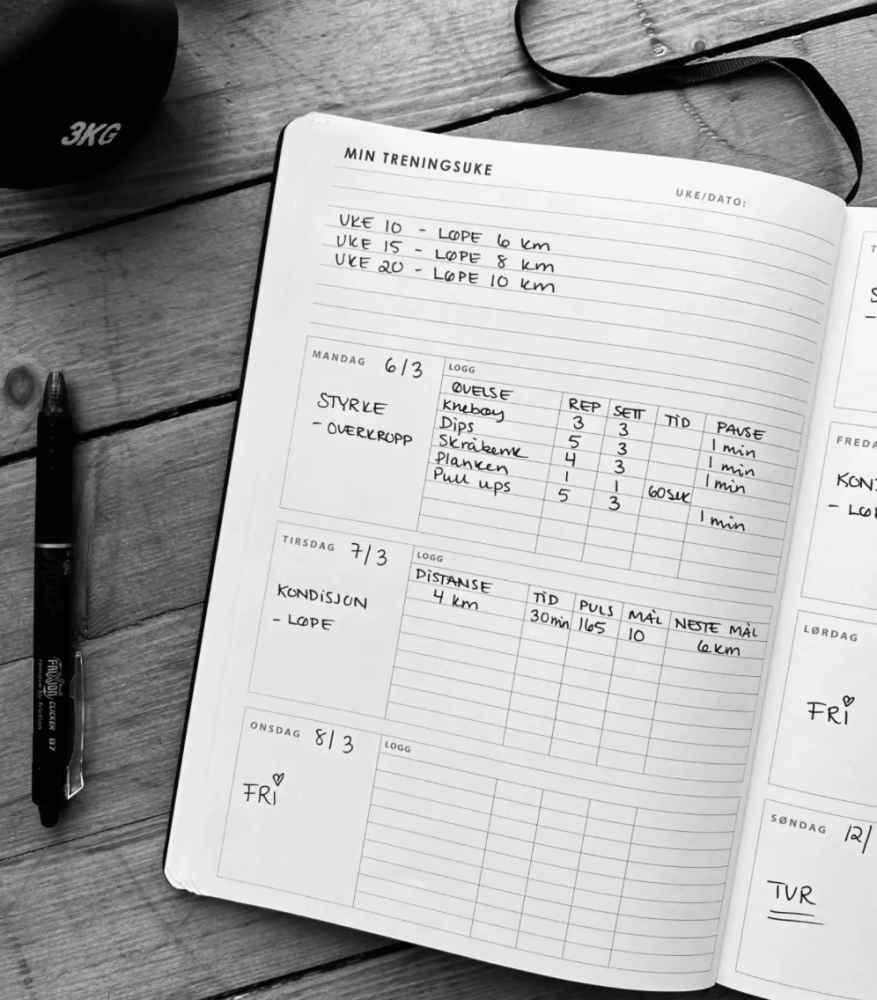 3KG
MIN TRENINGSUKE
UKE/DATO:
UKE 10 - LØPE 6 km
UKE 15 - LØPE 8 km
UKE 20 - LØPE 10 km
MANDAG 6/3
STYRKE
- OVERKROPP
LOGG
ØVELSE REP SETT TID PAUSE
Knebøy 3 3 1 min
Dips 5 3 1 min
Skråbenk 4 3 1 min
Planken 1 1 60 sek
Pull ups 5 3 1 min
TIRSDAG 7/3
KONDISJON
- LØPE
LOGG
DISTANSE TID PULS MÅL NESTE MÅL
4 km 30 min 165 10 6 km
ONSDAG 8/3
FRI
LOGG
FREDA
KON
- LØP
LØRDAG
FRI
SØNDAG 12/
TUR
FriXion CLICKER 07
remove by friction